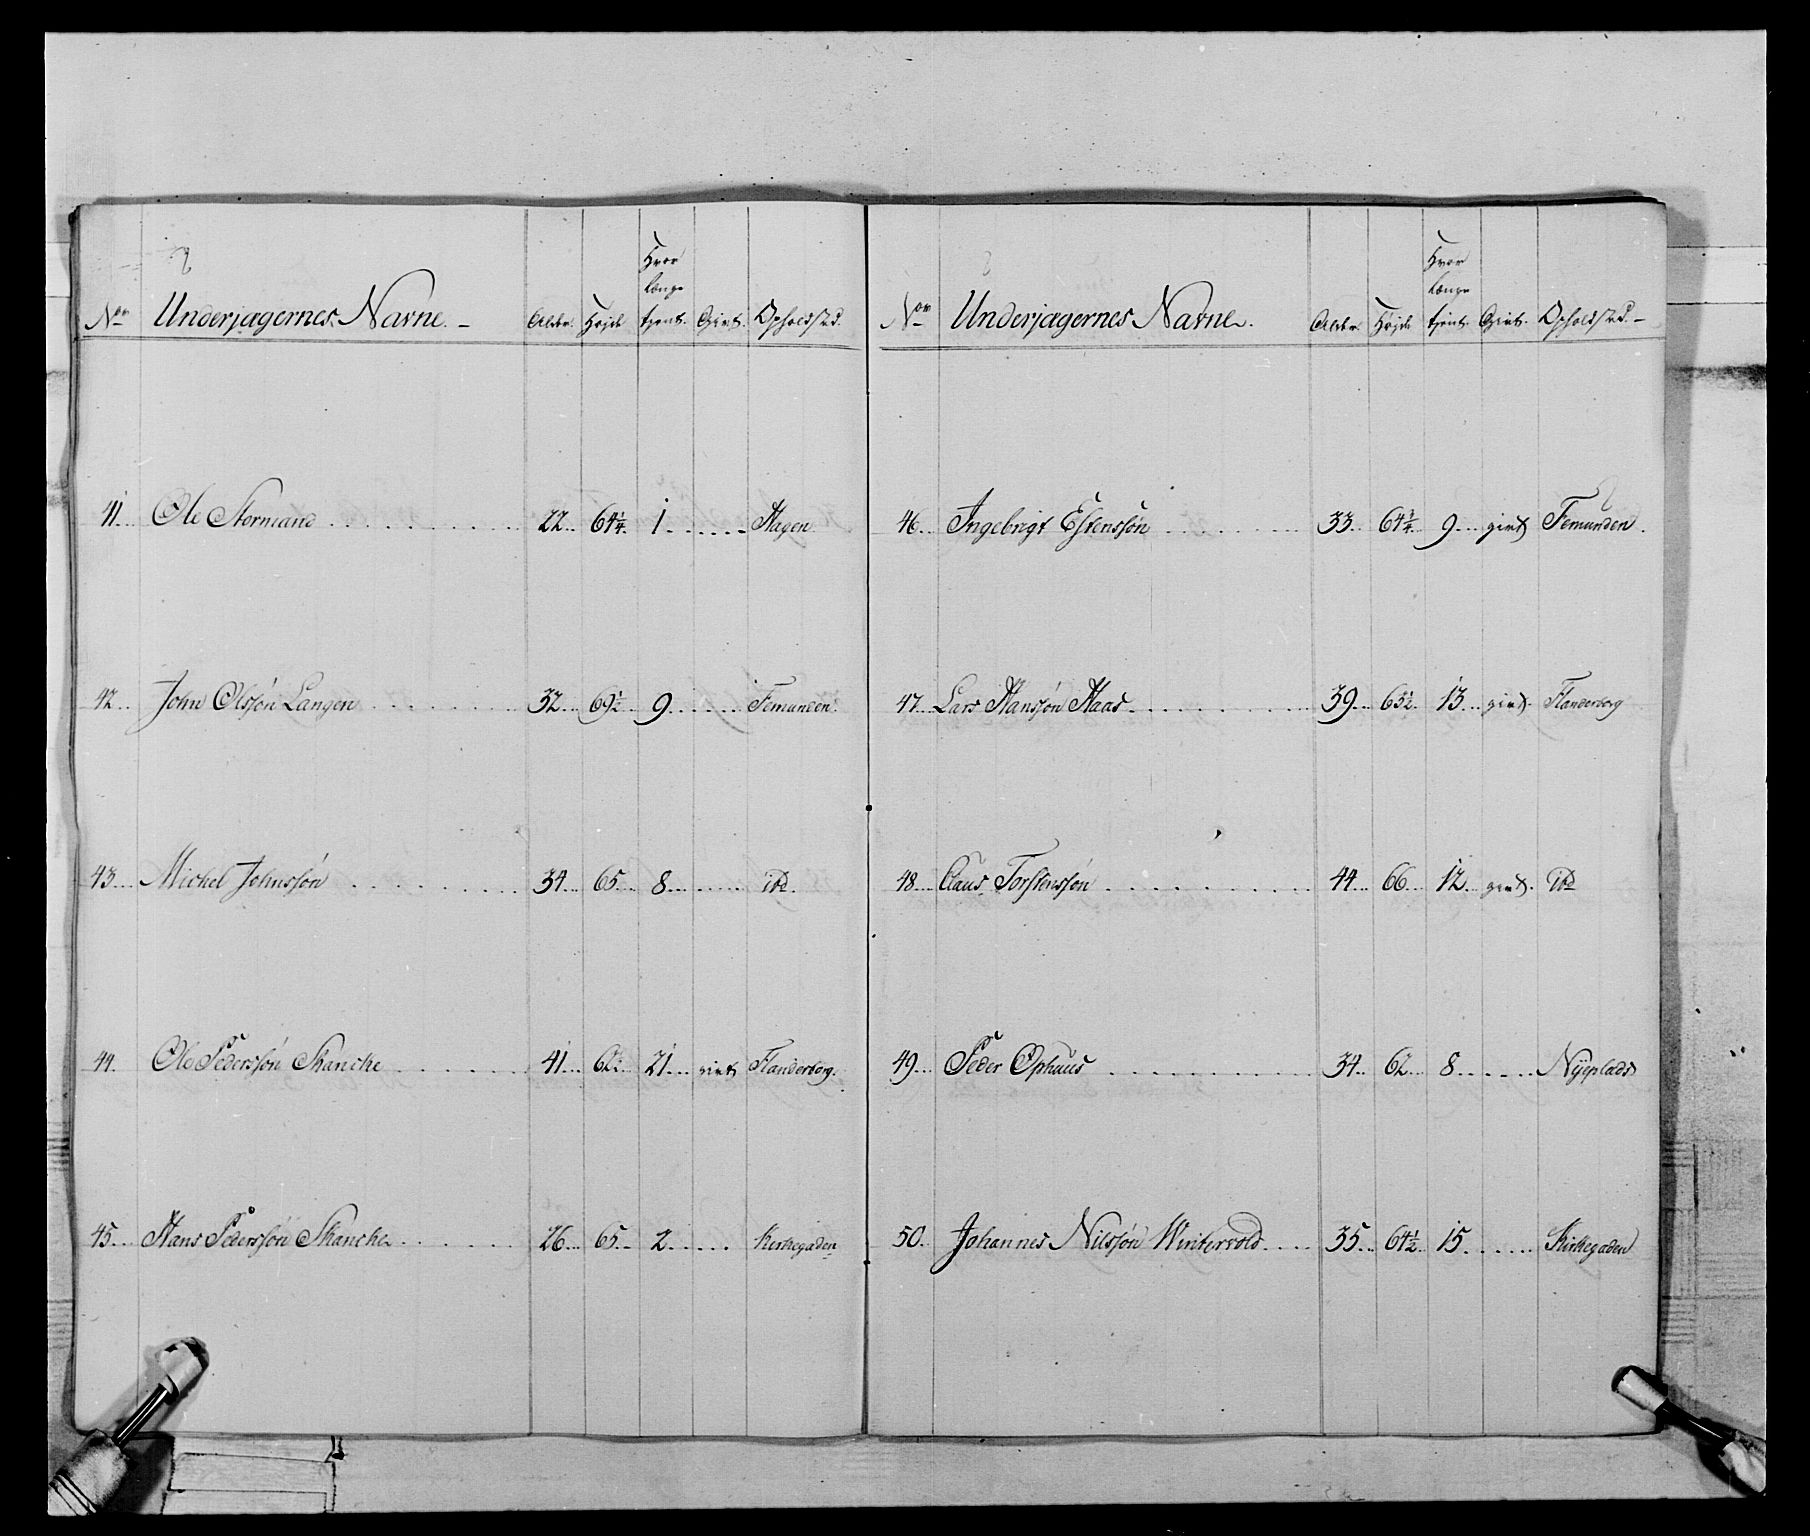 Nor Underjægernes Navne. Alder. Højde Hvor længe tjent. Givt. Opholdsted.
41. Ole Stormand 22 64 1/4 1 Hagen
42. John Olssøn Langen 32 69 1/2 9 Femunden
43. Michel Johnssøn 34 65 8 ibd
44. Ole Pederssøn Skancke 41 62 1/2 21 givt Flanderborg.
45. Hans Pederssøn Skancke 26 65 2 Kirkegaden
Nor Underjægernes Navne. Alder. Højde Hvor længe tjent. Givt. Opholdsted.
46. Ingebrigt Estenssøn 33 64 9 givt Femunden.
47. Lars Hanssøn Aaas 39 63 1/2 13 givt. Flanderborg
48. Claus Torstenssøn 44 66 12 givt. ibd
49. Peder Ophuus 34 62 8 Nÿeplads
50. Johannes Nilssøn Wintervold 35 64 1/2 15 Kirkegaden